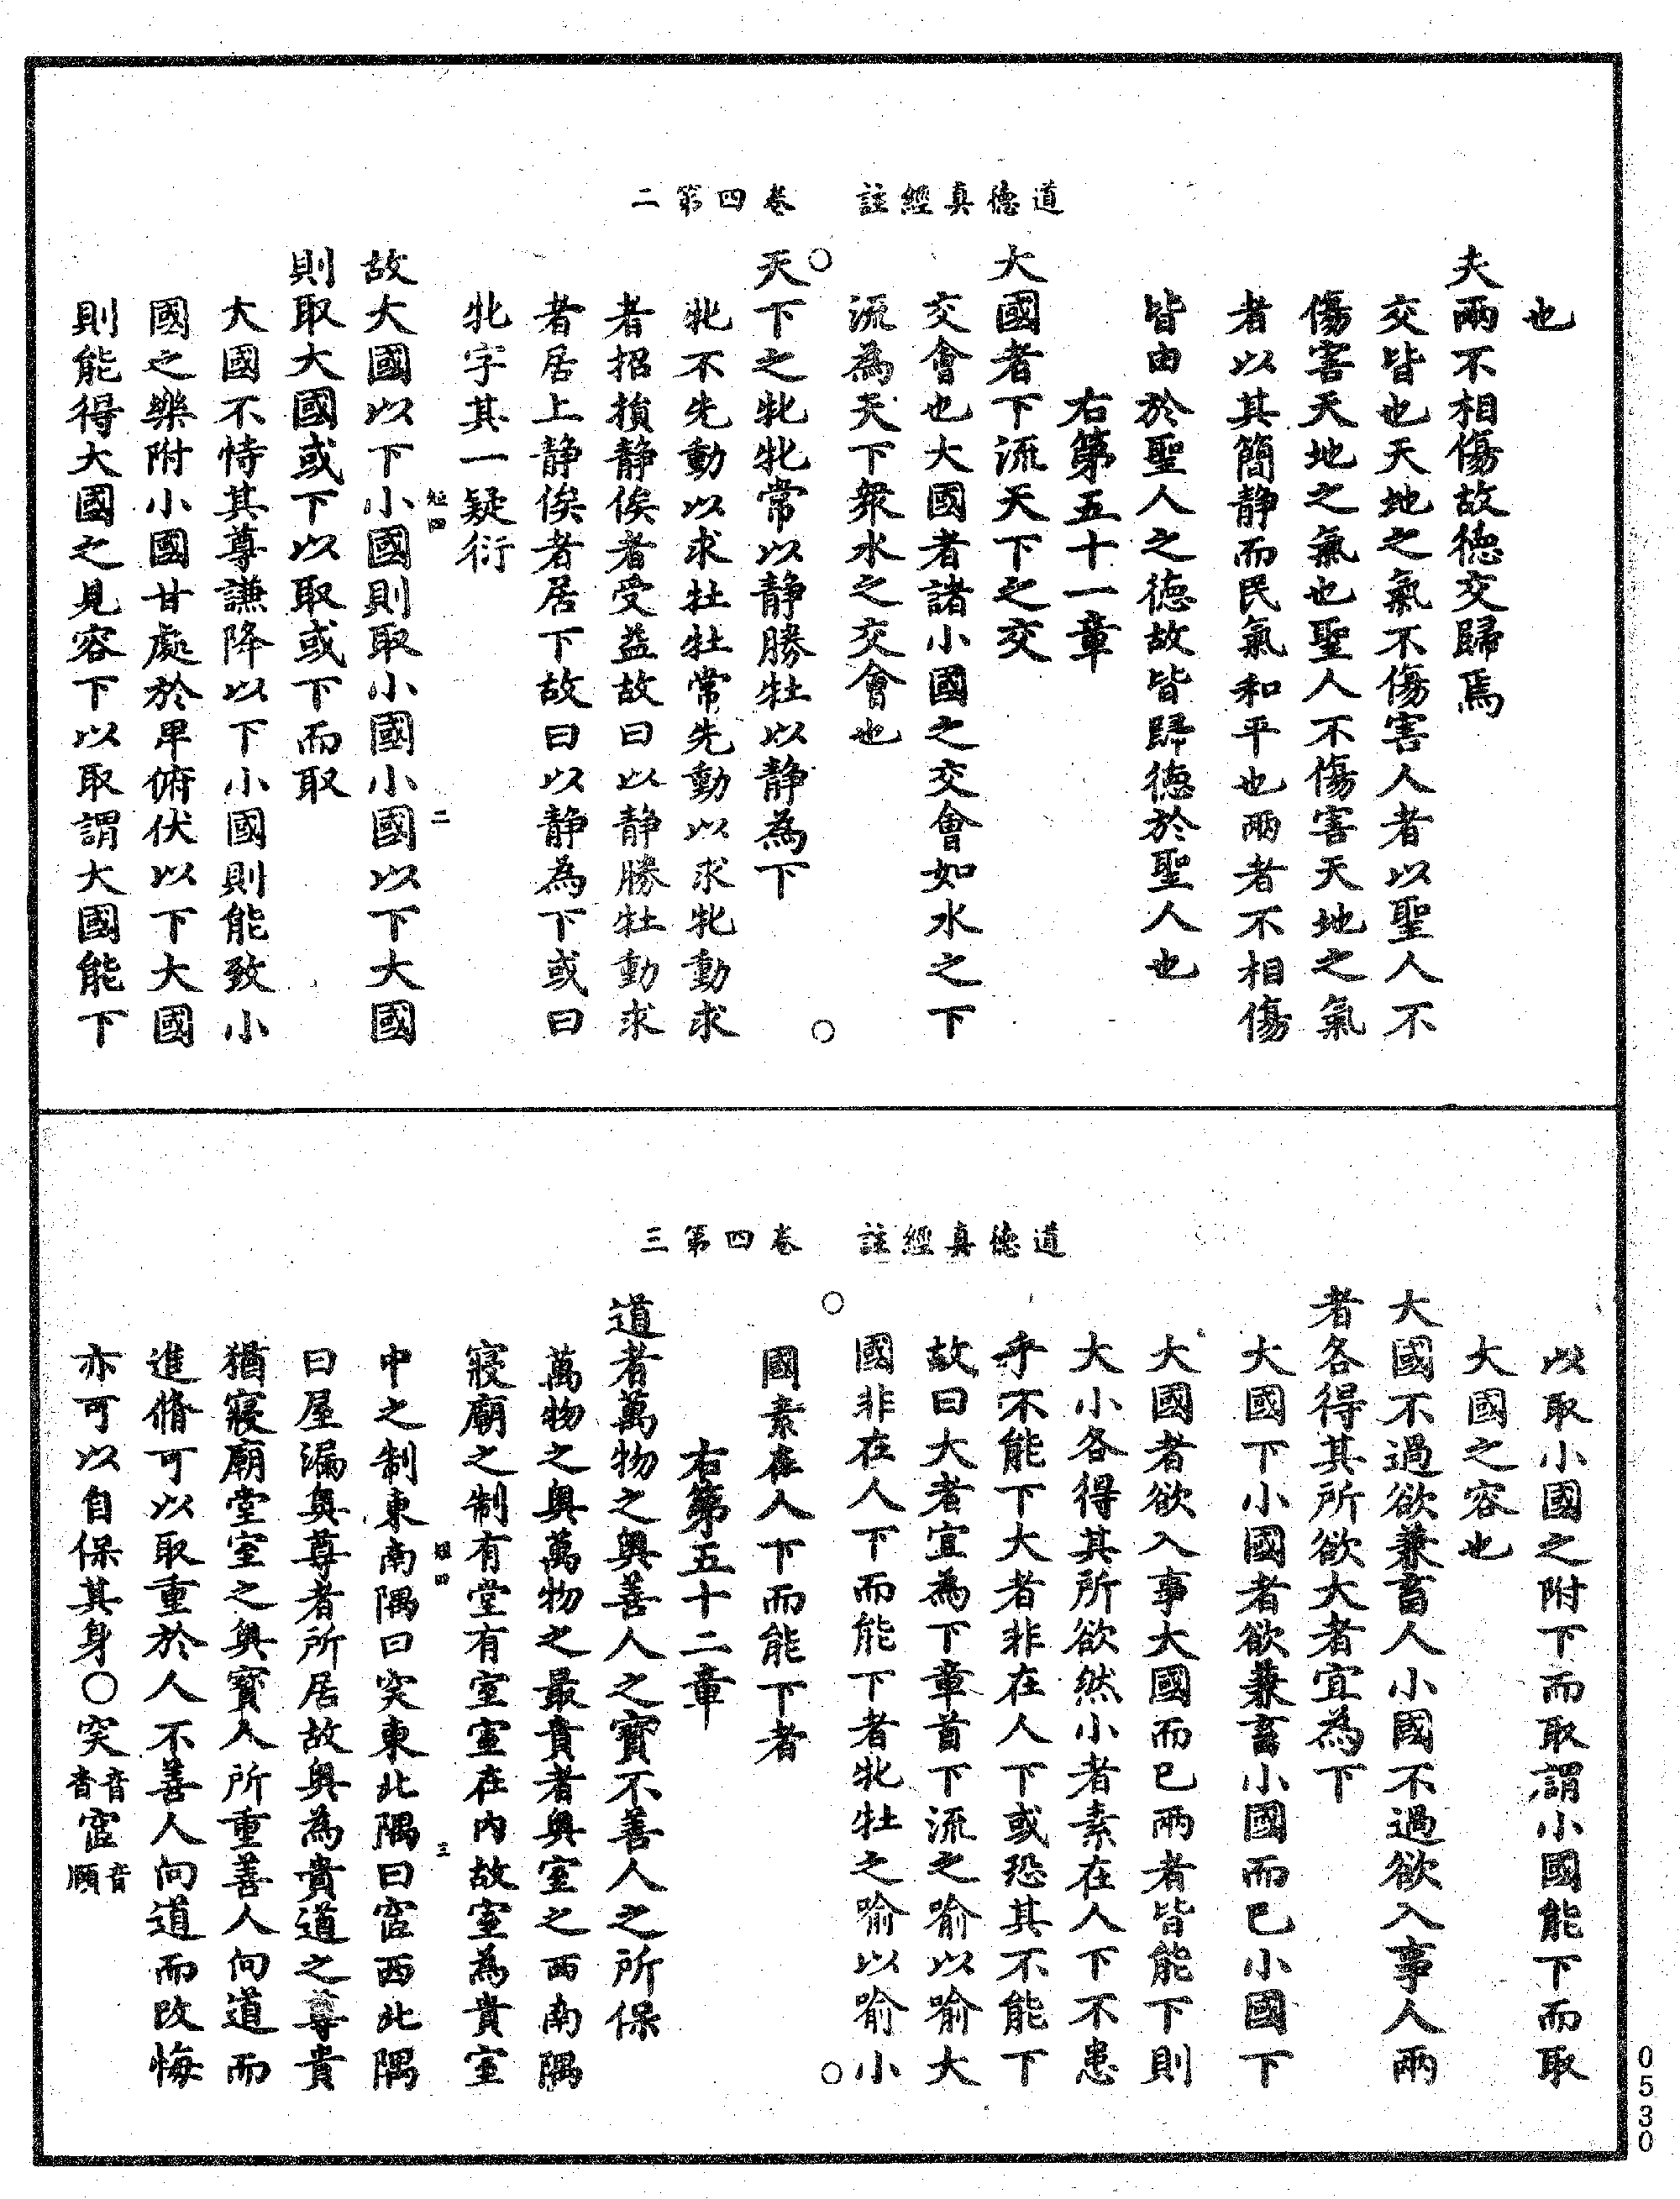 道德真經註　卷四第二
也
夫兩不相傷故德交歸焉
交皆也天地之氣不傷害人者以聖人不
傷害天地之氣也聖人不傷害天地之氣
者以其簡静而民氣和平也兩者不相傷
皆由於聖人之德故皆歸德於聖人也
右第五十一章
大國者下流天下之交
交會也大國者諸小國之交會如水之下
流為天下衆水之交會也
天下之牝牝常以静勝牡以静為下
牝不先動以求牡牡常先動以求牝動求
者招損静俟者受益故曰以静勝牡動求
者居上静俟者居下故曰以静為下或曰
牝字其一疑衍
故大國以下小國則取小國小國以下大國
則取大國或下以取或下而取
大國不恃其尊謙降以下小國則能致小
國之樂附小國甘處於卑俯伏以下大國
則能得大國之見容下以取謂大國能下
道德真經註　卷四第三
以取小國之附下而取謂小國能下而取
大國之容也
大國不過欲兼畜人小國不過欲入事人兩
者各得其所欲大者宜為下
大國下小國者欲兼畜小國而已小國下
大國者欲入事大國而已兩者皆能下則
大小各得其所欲然小者素在人下不患
乎不能下大者非在人下或恐其不能下
故曰大者宜為下章首下流之喻以喻大
國非在人下而能下者牝牡之喻以喻小
國素在人下而能下者
右第五十二章
道者萬物之奧善人之寶不善人之所保
萬物之奧萬物之最貴者奧室之西南隅
寢廟之制有堂有室室在內故室為貴室
中之制東南隅曰穾東北隅曰宧西北隅
曰屋漏奧尊者所居故奧為貴道之尊貴
猶寢廟堂室之奧寶人所重善人向道而
進脩可以取重於人不善人向道而改悔
亦可以自保其身○穾音杳宧音頤
0530